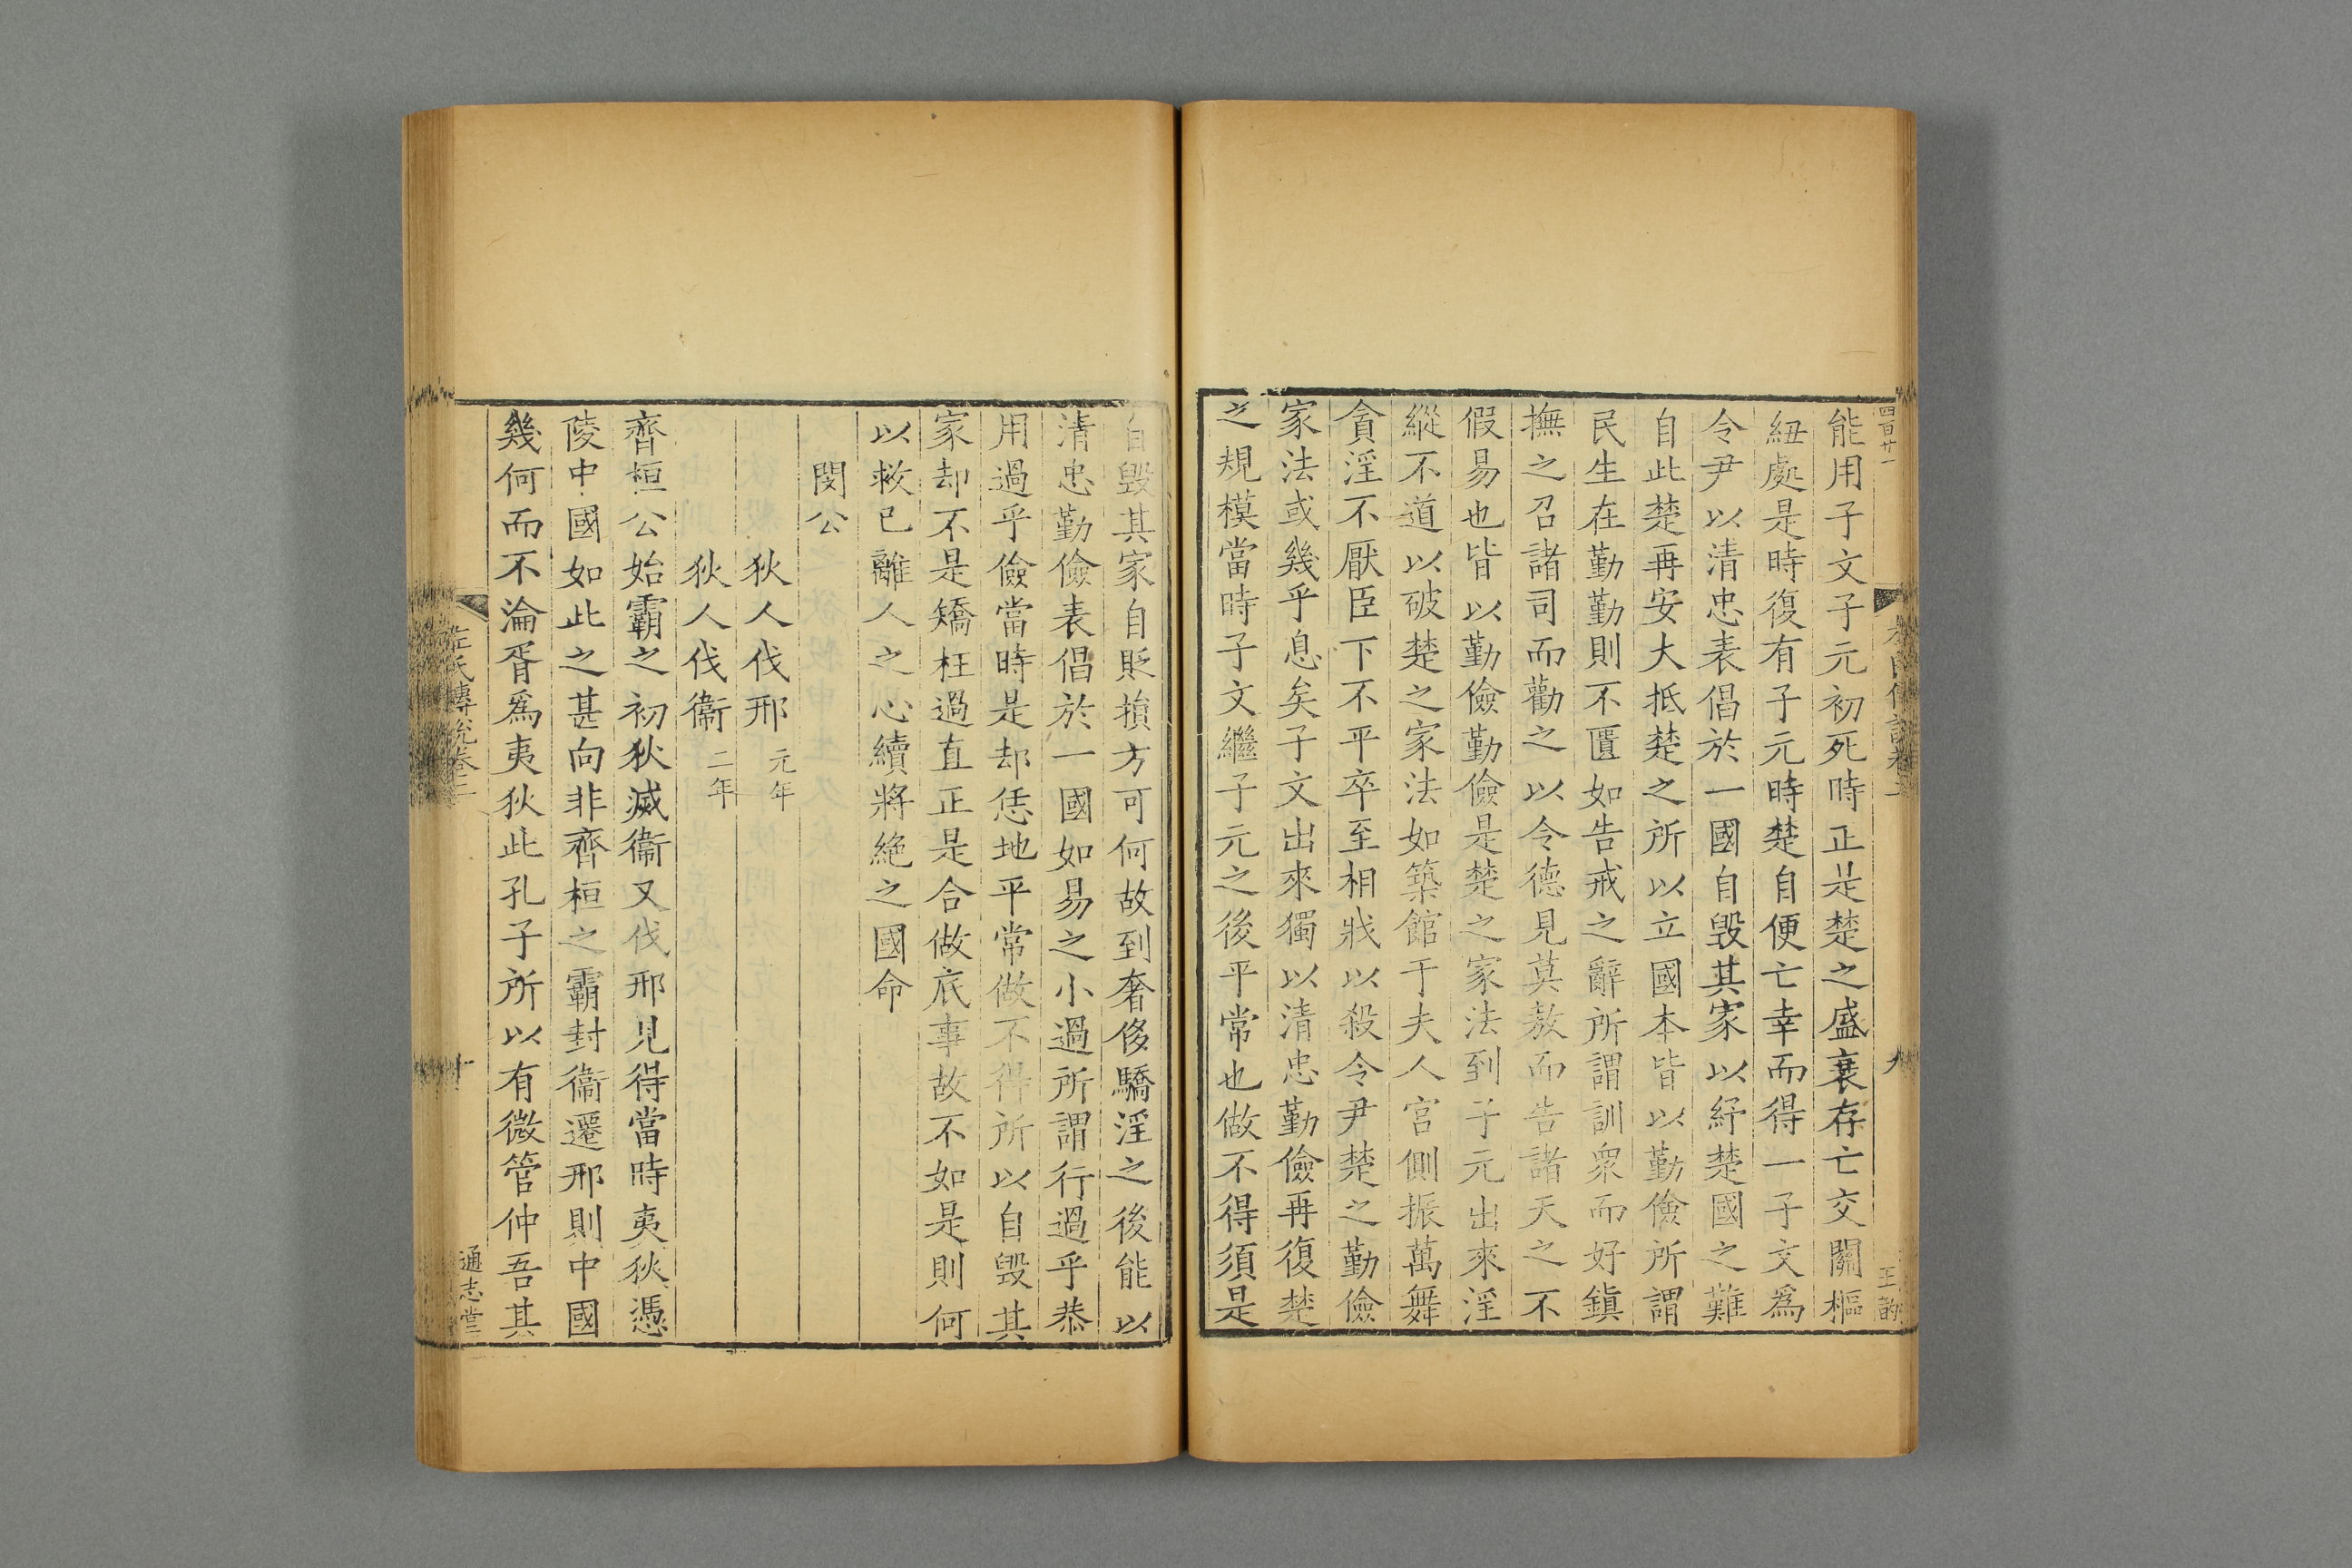 四百廿一
能用子文子元初死時正是楚之盛衰存亡交關樞
紐處是時復有子元時楚自便亡幸而得一子文爲
令尹以清忠表倡於一國自毀其家以紓楚國之難
自此楚再安大抵楚之所以立國本皆以勤儉所謂
民生在勤勤則不匱如告戒之辭所謂訓衆而好鎮
撫之召諸司而勸之以令德見莫敖而告諸天之不
假易也皆以勤儉勤儉是楚之家法到子元出來淫
縱不道以破楚之家法如築館于夫人宮側振萬舞
貪淫不厭臣下不平卒至相戕以殺令尹楚之勤儉
家法或幾乎息矣子文出來獨以清忠勤儉再復楚
之規模當時子文繼子元之後平常也做不得須是
自毀其家自貶損方可何故到奢侈驕淫之後能以
清忠勤儉表倡於一國如易之小過所謂行過乎恭
用過乎儉當時是却恁地平常做不得所以自毀其
家却不是矯枉過直正是合做底事故不如是則何
以救已離人之心續將絕之國命
閔公
狄人伐邢 元年
狄人伐衞 二年
齊桓公始霸之初狄滅衞又伐邢見得當時夷狄憑
陵中國如此之甚向非齊桓之霸封衞遷邢則中國
幾何而不淪胥爲夷狄此孔子所以有微管仲吾其
左氏傳說卷二
十
通志堂